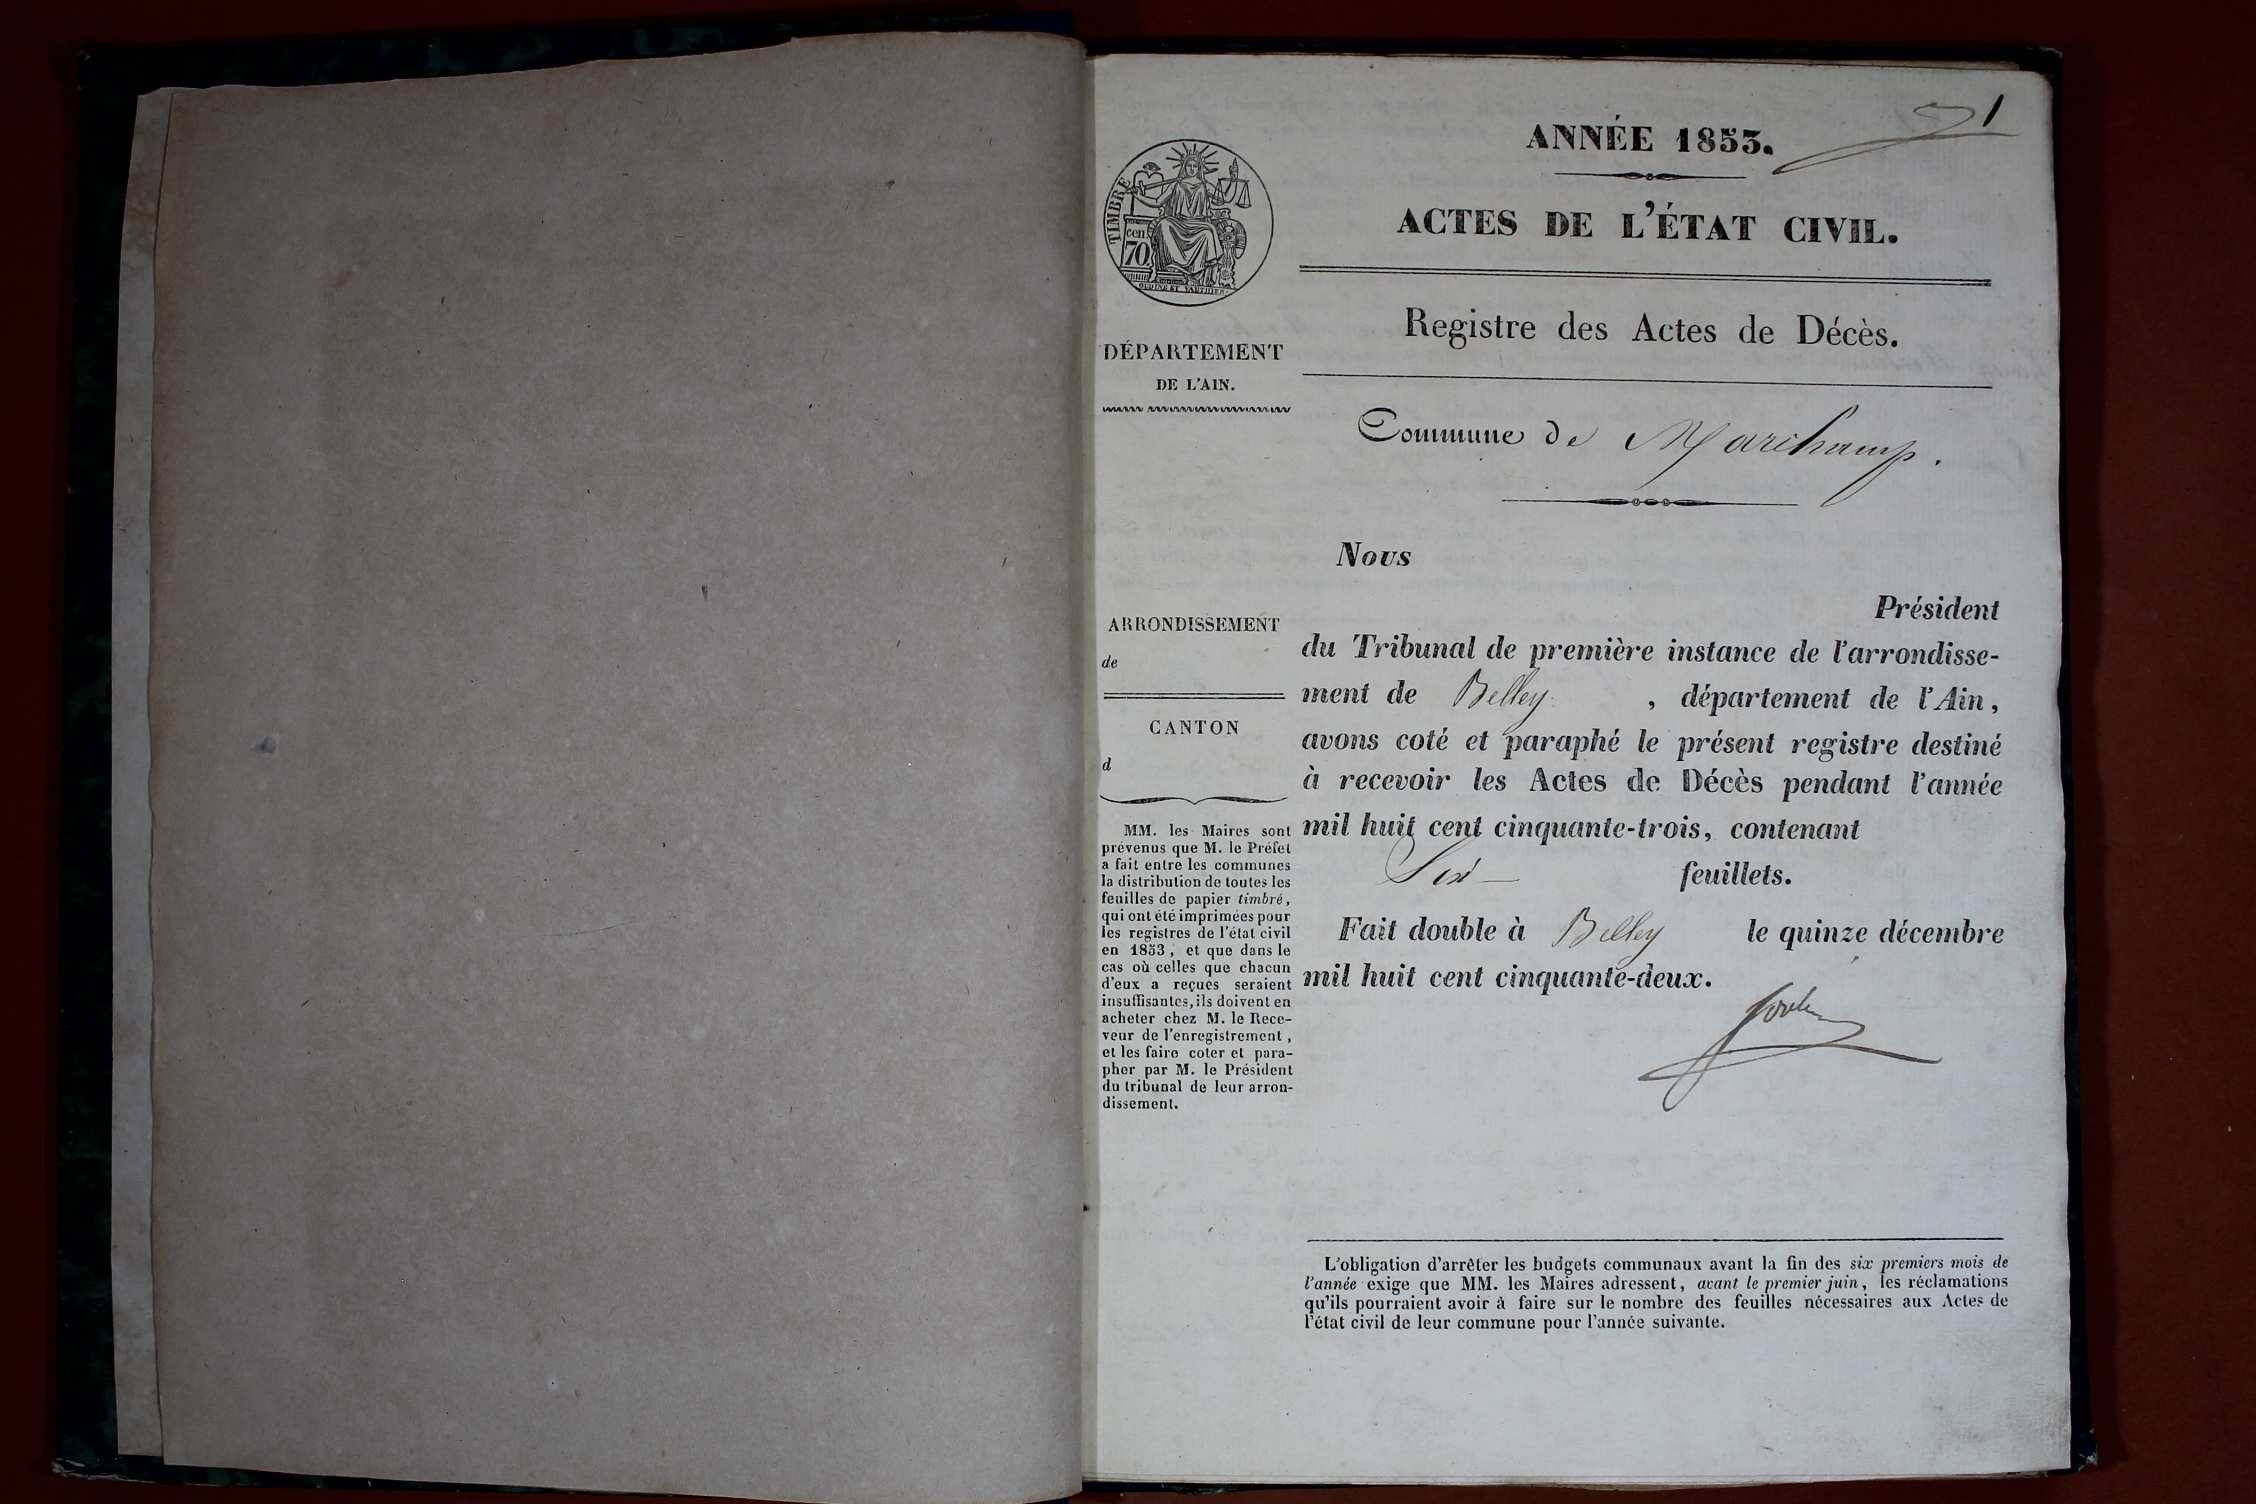 1
ANNÉE 1853.
ACTES DE L'ÉTAT CIVIL.
Registre des Actes de Décès.
Commune de Marchamp.
TIMBRE
cen.
70.
OUDINÉ ET VAUTHIER.
DÉPARTEMENT
DE L'AIN.
ARRONDISSEMENT
de
CANTON
d
MM. les Maires sont
prévenus que M. le Préfet
a fait entre les communes
la distribution de toutes les
feuilles de papier timbré,
qui ont été imprimées pour
les registres de l'état civil
en 1853, et que dans le
cas où celles que chacun
d'eux a reçues seraient
insuffisantes, ils doivent en
acheter chez M. le Rece-
veur de l'enregistrement,
et les faire coter et para-
pher par M. le Président
du tribunal de leur arron-
dissement.
Nous
Président
du Tribunal de première instance de l'arrondisse-
ment de Belley , département de l'Ain,
avons coté et paraphé le présent registre destiné
à recevoir les Actes de Décès pendant l'année
mil huit cent cinquante-trois, contenant
Six feuillets.
Fait double à Belley le quinze décembre
mil huit cent cinquante-deux.
L'obligation d'arrêter les budgets communaux avant la fin des six premiers mois de
l'année exige que MM. les Maires adressent, avant le premier juin, les réclamations
qu'ils pourraient avoir à faire sur le nombre des feuilles nécessaires aux Actes de
l'état civil de leur commune pour l'année suivante.